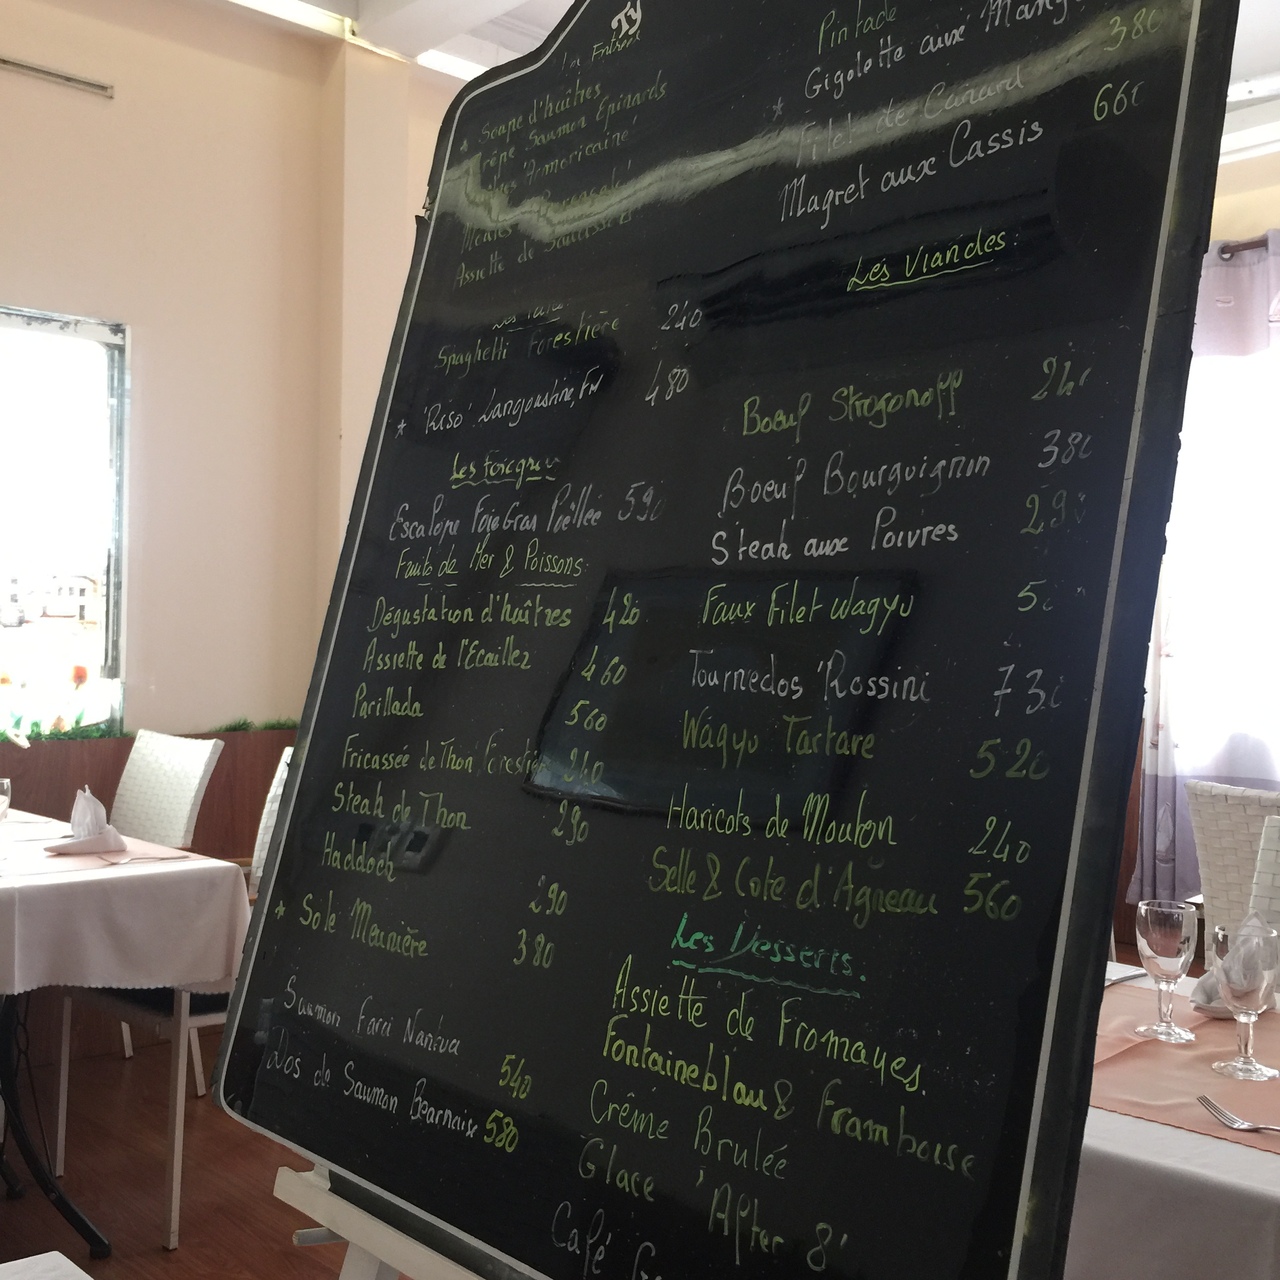 Ty
Entrées
* Soupe d'huîtres
Saumon Epinards
Armoricaine
Assiette de Saucisses
Les Pates
Spaghetti Forestière 240
* 'Riso' Langoustine, 480
Les Foiegras
Escalope Foie Gras Poëllée 590
Fruits de Mer & Poissons:
Dégustation d'huîtres 420
Assiette de l'Ecailler 460
Parillada 560
Fricassée de Thon Forestière 240
Steak de Thon 290
Haddock 290
* Sole Meunière 380
Saumon Farci Nantua 540
Dos de Saumon Bearnaise 580
Pintade
Gigolette aux 380
* Filet de Canard
Magret aux Cassis 660
Les Viandes:
Boeuf Strogonoff
Boeuf Bourguignon 380
Steak aux Poivres 290
Faux Filet Wagyu
Tournedos 'Rossini 730
Wagyu Tartare 520
Haricots de Mouton 240
Selle & Cote d'Agneau 560
Les Desserts.
Assiette de Fromages.
Fontainebleau & Framboise
Crême Brulée
Glace 'After 8'
Café